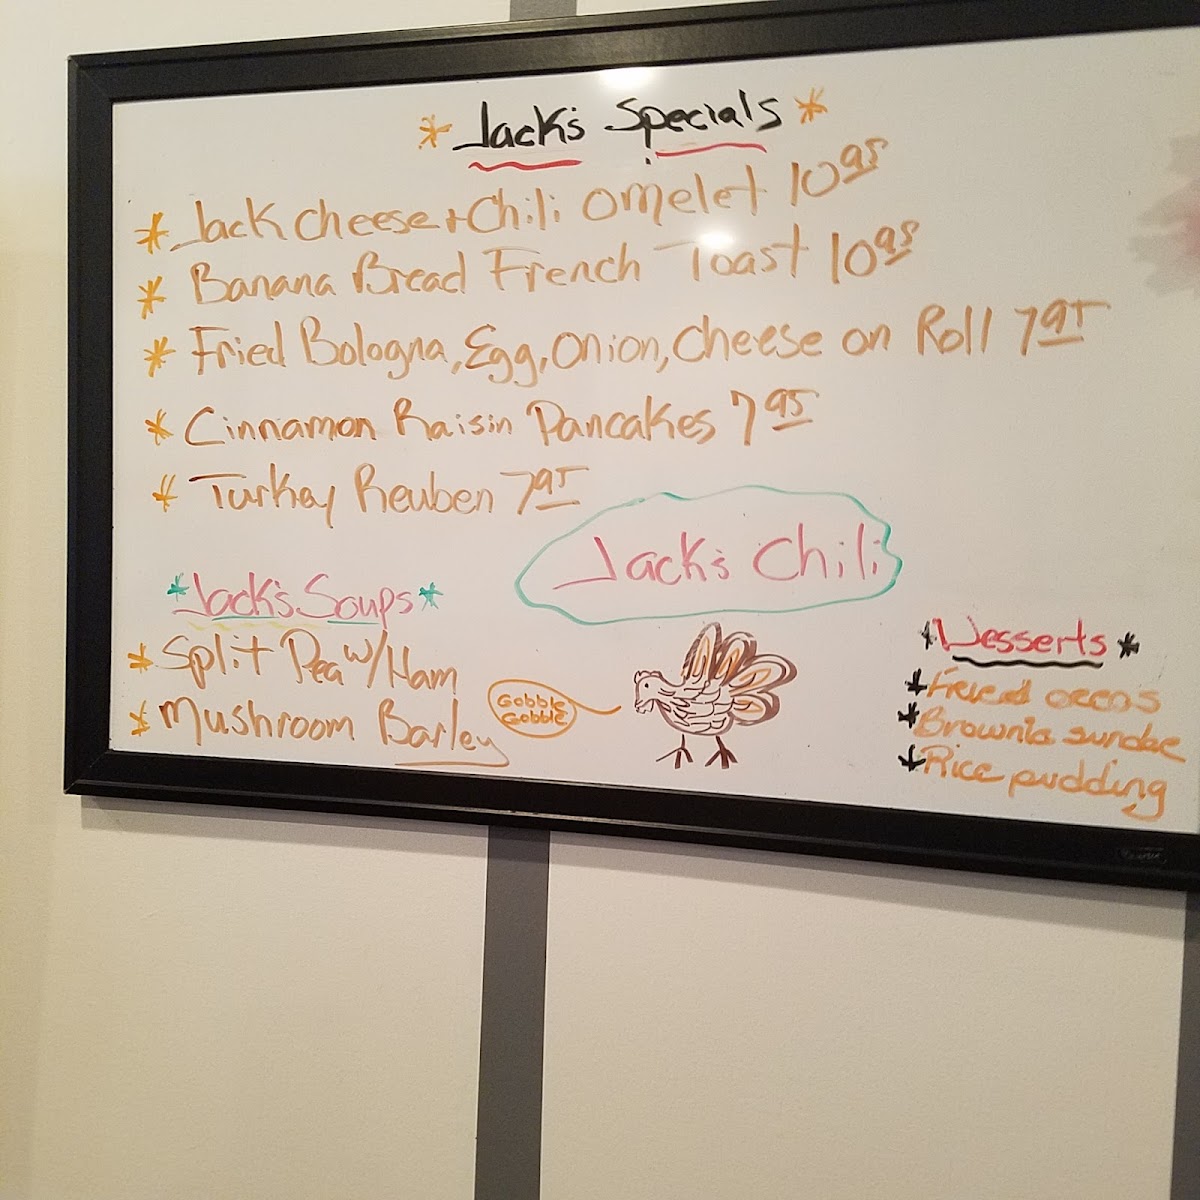 * Jack's Specials *
* Jack Cheese + Chili Omelet 10 95
* Banana Bread French Toast 10 95
* Fried Bologna, Egg, Onion, Cheese on Roll 7 95
* Cinnamon Raisin Pancakes 7 95
* Turkey Reuben 7 95
Jack's Chili
* Jack's Soups *
* Split Pea w/ Ham
* Mushroom Barley
Gobble
Gobble
* Desserts *
* Fried oreos
* Brownie sundae
* Rice pudding